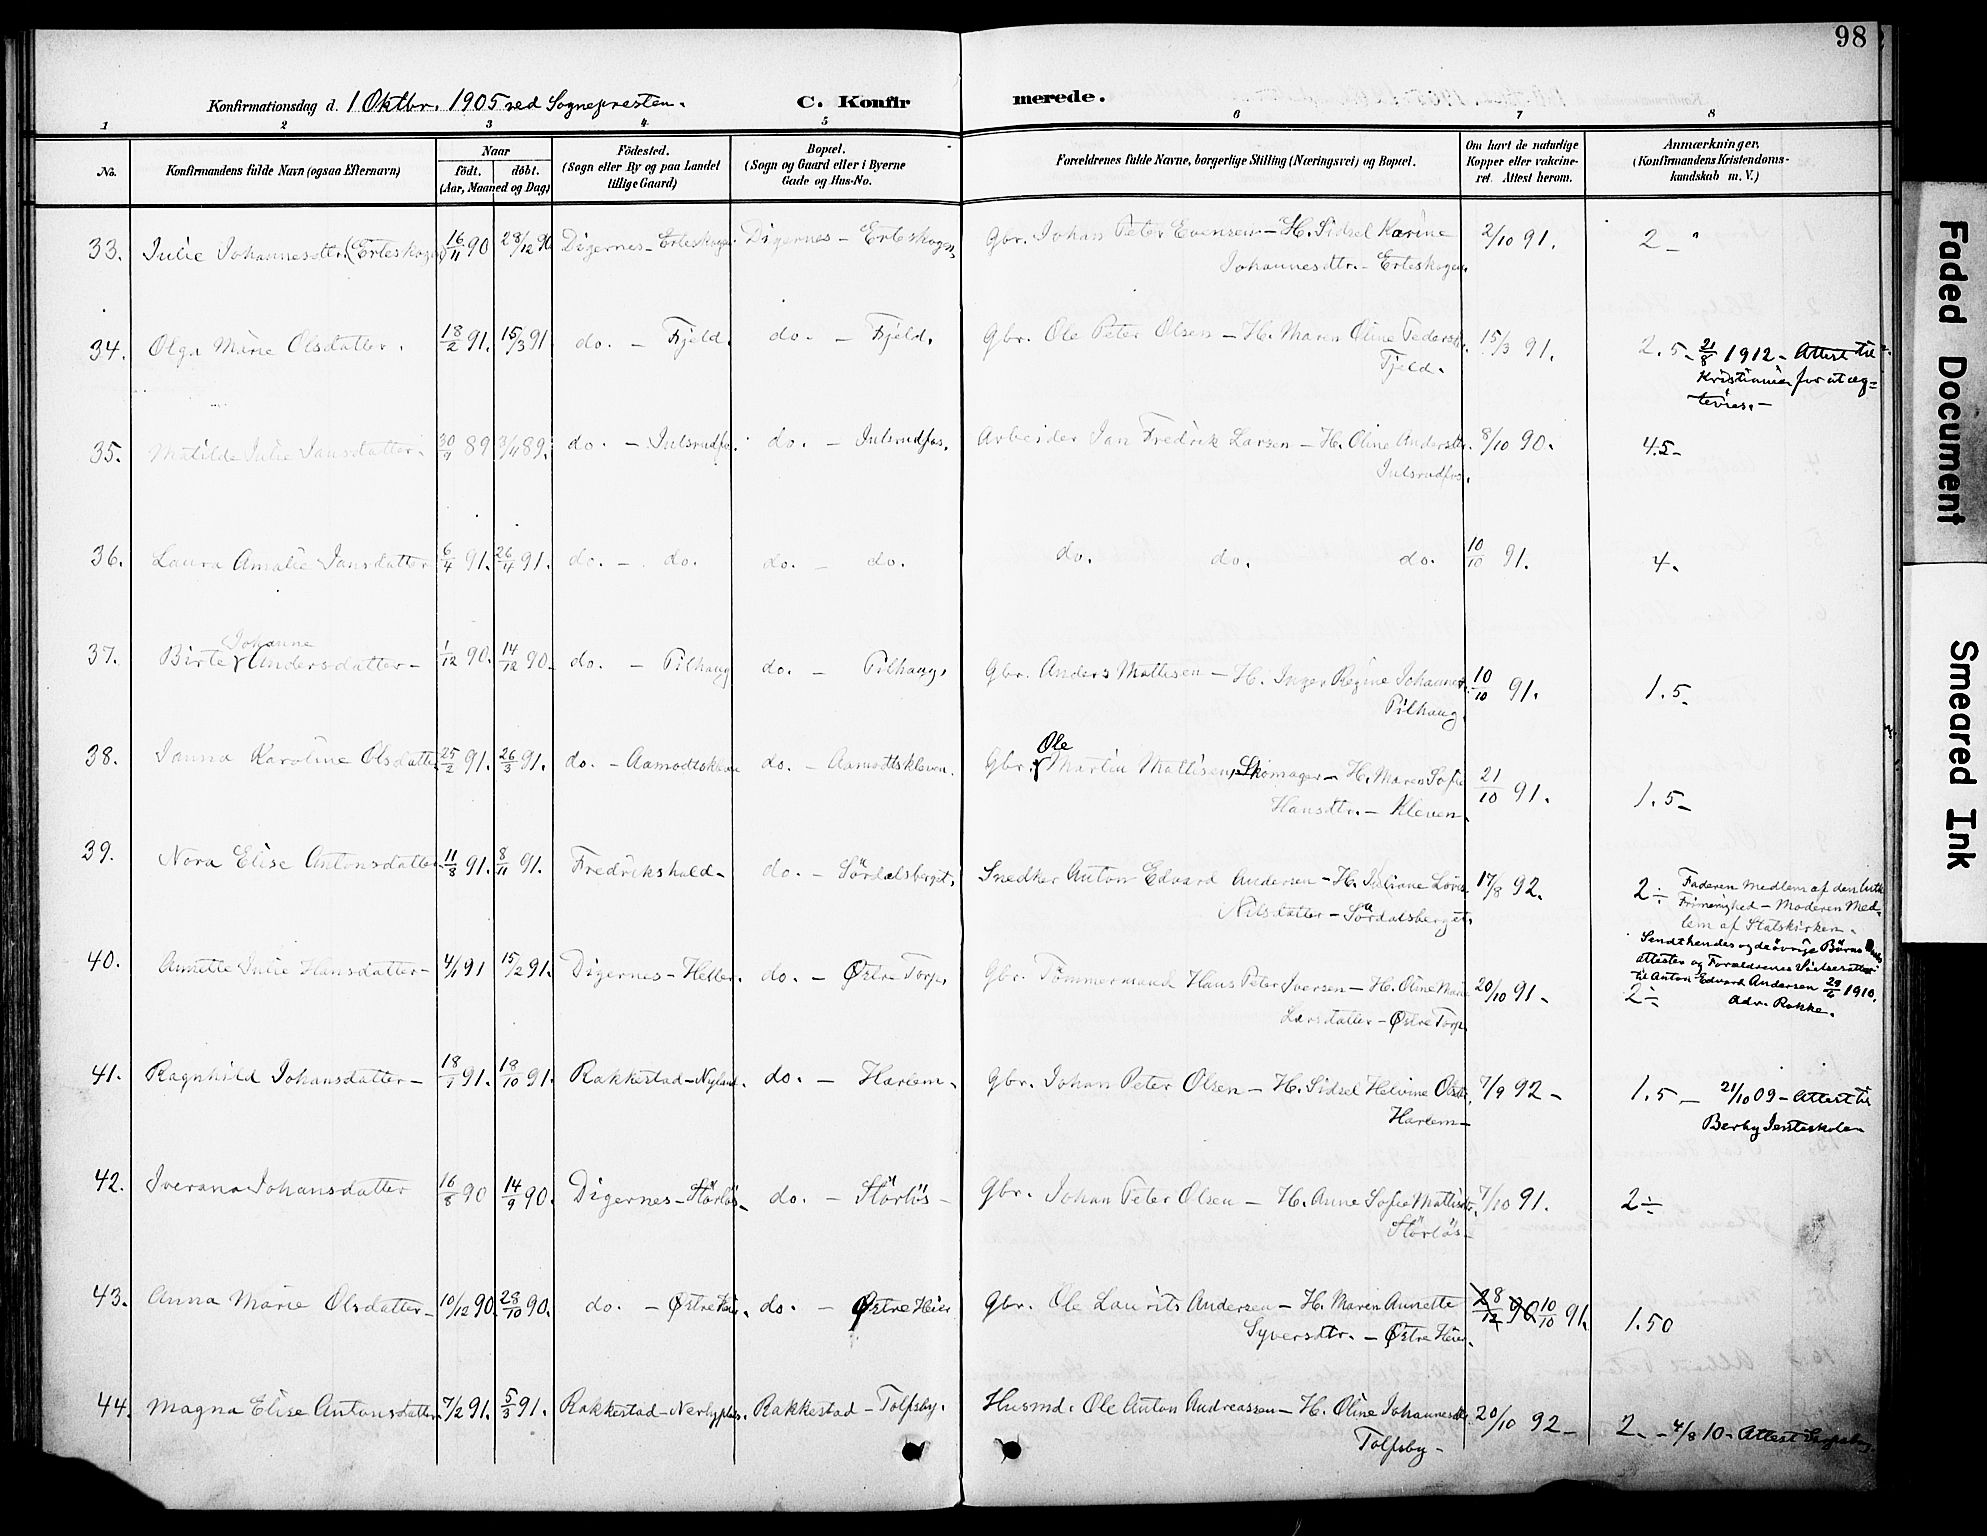 98
Konfirmationsdag d. 1 Oktbr. 1905 ved Sognepresten. C. Konfirmerede.
1 2 3 4 5 6 7 8
No. Konfirmandens fulde Navn (ogsaa Efternavn) Naar født. døbt. (Aar, Maaned og Dag) Fødested. (Sogn eller By og paa Landet tillige Gaard) Bopæl. (Sogn og Gaard eller i Byerne Gade og Hus-No. Forældrenes fulde Navne, borgerlige Stilling (Næringsvei) og Bopæl. Om havt de naturlige Kopper eller vakcineret. Attest herom. Anmærkninger, (Konfirmandens Kristendomskundskab m. V.)
33. Julie Johannesdtr. (Erteskogen 16/11 90 28/12 90 Digernes – Erteskogen Digernes – Erteskogen Gbr. Johan Peter Evensen – H. Sidsel Karine 2/10 91. 2 –
Johannesdtr. – Erteskogen.
34. Olga Marie Olsdatter. 18/2 91. 15/3 91 do. – Fjeld. do. – Fjeld. Gbr. Ole Peter Olsen – H. Maren Oline Pedersdtr. 15/3 91. 2.5 – 21/8 1912 – Attest til
Fjeld. Kristiania for at æg-
tevies. –
35. Matilde Julie Jansdatter. 89 89. do. – Julsrudfos. do. – Julsrudfos. Arbeider Jan Fredrik Larsen – H. Oline Andersdtr. 8/10 90. 4.5 –
Julsrudfos.
36. Laura Amalie Jansdatter 6/4 91. 26/4 91. do. – do. do. – do. do. do. do. 10/10 91. 4.
37. Birte Johanne Andersdatter – 1/12 90. 14/12 90 – do. – Pilhaug do. – Pilhaug. Gbr. Anders Mattisen – H. Inger Regine Johannesd. 10/10 91. 1.5 –
Pilhaug.
38. Janna Karoline Olsdatter 25/2 91. 26/3 91. do. – Aamodtskleven do. – Aamodtskleven. Gbr. Ole Martin Mattisen, Skomager – H. Maren Sofie 21/10 91. 1.5 –
Hansdtr. – Kleven –
39. Nora Elise Antonsdatter 11/8 91. 8/11 91. Fredrikshald – do. – Sördalsberget. Snedker Anton Edvard Andersen – H. Juliane Lovise 17/8 92. 2 ÷ Faderen Medlem af den luth.
Nilsdatter – Sördalsberget. Frimenighed – Moderen Med-
lem af Statskirken –
Sendt hendes og de øvrige Börns
attester og Forældrenes Vielsesattest
til Anton Edvard Andersen 29/6 1910.
adr. Rakke.
40. Annette Julie Hansdatter – 4/1 91 15/2 91. Digernes – Heller. do. – Østre Torp. Gbr. Tømmermand Hans Peter Iversen – H. Oline Marie 20/10 91 – 2 –
Larsdatter – Østre Torp.
41. Ragnhild Johansdatter – 91. 18/10 91. Rakkestad – Nyland. do. – Harlem – Gbr. Johan Peter Olsen – H. Sidsel Helvine Olsdtr. 7/9 92 – 1.5 – 21/10 09 – Attest til
Harlem – Berby Jenteskole –
42. Iverana Johansdatter 16/8 90 14/9 90. Digernes – Störlös – do. – Störlös – Gbr. Johan Peter Olsen – H. Anne Sofie Mattisdtr. 7/10 91. 2 ÷
Störlös –
43. Anna Marie Olsdatter – 10/12 90. 28/10 90. do. – Østre Heier. do. – Østre Heier Gbr. Ole Laurits Andersen – H. Maren Annette 28/12 90 10/10 91. 1.50
Syversdtr. – Østre Heier.
44. Magna Elise Antonsdatter. 7/2 91. 5/3 91. Rakkestad – Nerbyplds. Rakkestad – Tolfsby. Husmd. Ole Anton Andreassen – H. Oline Johannesdtr. 20/10 92 – 2. – 4/8 10 – Attest
Tolfsby –
Faded Document
Smeared Ink